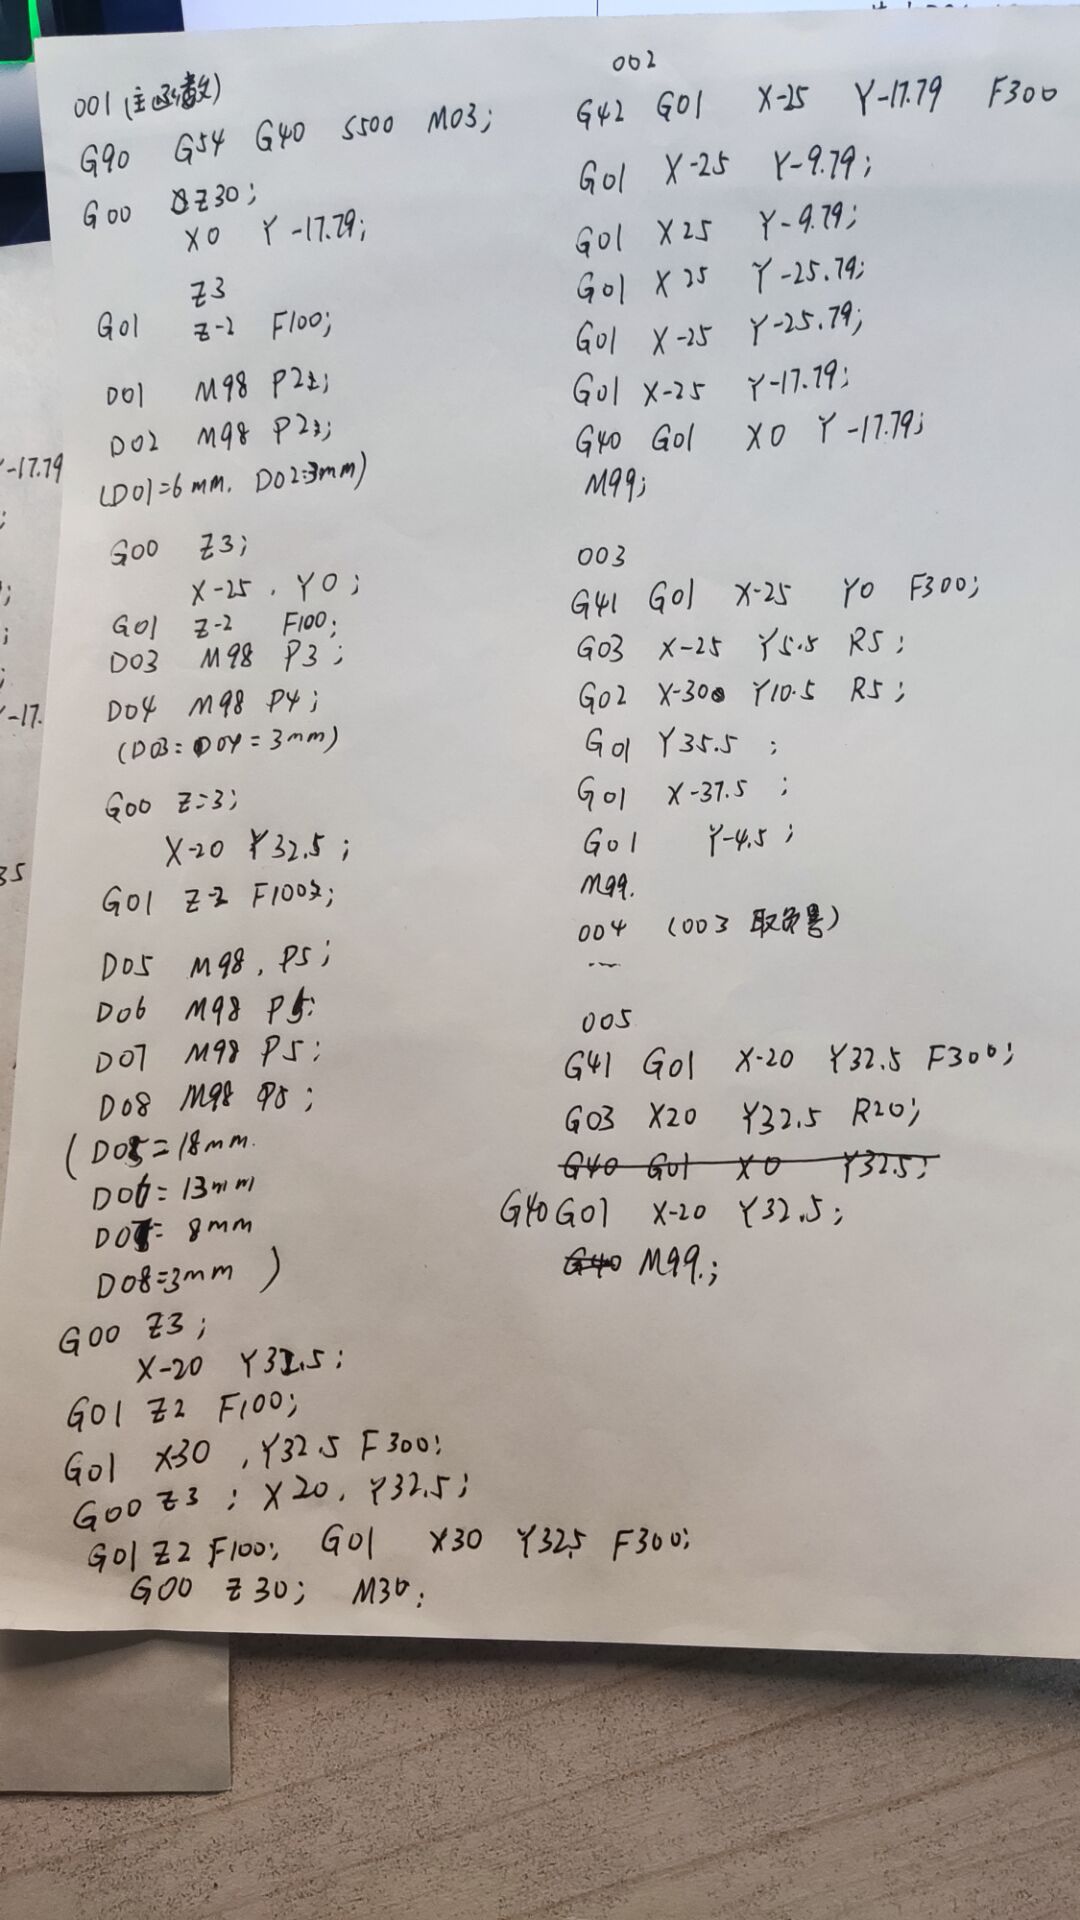 001 (主函数)
G90 G54 G40 S500 M03;
G00 Z30;
X0 Y-17.79;
Z3
G01 Z-2 F100;
D01 M98 P2;
D02 M98 P2;
(D01=6mm. D02=3mm)
G00 Z3;
X-25. Y0;
G01 Z-2 F100;
D03 M98 P3;
D04 M98 P4;
(D03=D04=3mm)
G00 Z=3;
X-20 Y32.5;
G01 Z-2 F100;
D05 M98, P5;
D06 M98 P5;
D07 M98 P5;
D08 M98 P5;
(D05=18mm.
D06=13mm
D07=8mm
D08=3mm)
G00 Z3;
X-20 Y32.5;
G01 Z2 F100;
G01 X-30, Y32.5 F300;
G00 Z3; X20, Y32.5;
G01 Z2 F100; G01 X30 Y32.5 F300;
G00 Z30; M30;
002
G42 G01 X-25 Y-17.79 F300
G01 X-25 Y-9.79;
G01 X25 Y-9.79;
G01 X25 Y-25.79;
G01 X-25 Y-25.79;
G01 X-25 Y-17.79;
G40 G01 X0 Y-17.79;
M99;
003
G41 G01 X-25 Y0 F300;
G03 X-25 Y5.5 R5;
G02 X-30 Y10.5 R5;
G01 Y35.5;
G01 X-37.5;
G01 Y-4.5;
M99.
004 (003 取负号)
...
005
G41 G01 X-20 Y32.5 F300;
G03 X20 Y32.5 R20;
G40 G01 X0 Y32.5;
G40 G01 X-20 Y32.5;
G40 M99.;
-17.79
;
;
;
;
-17.
35